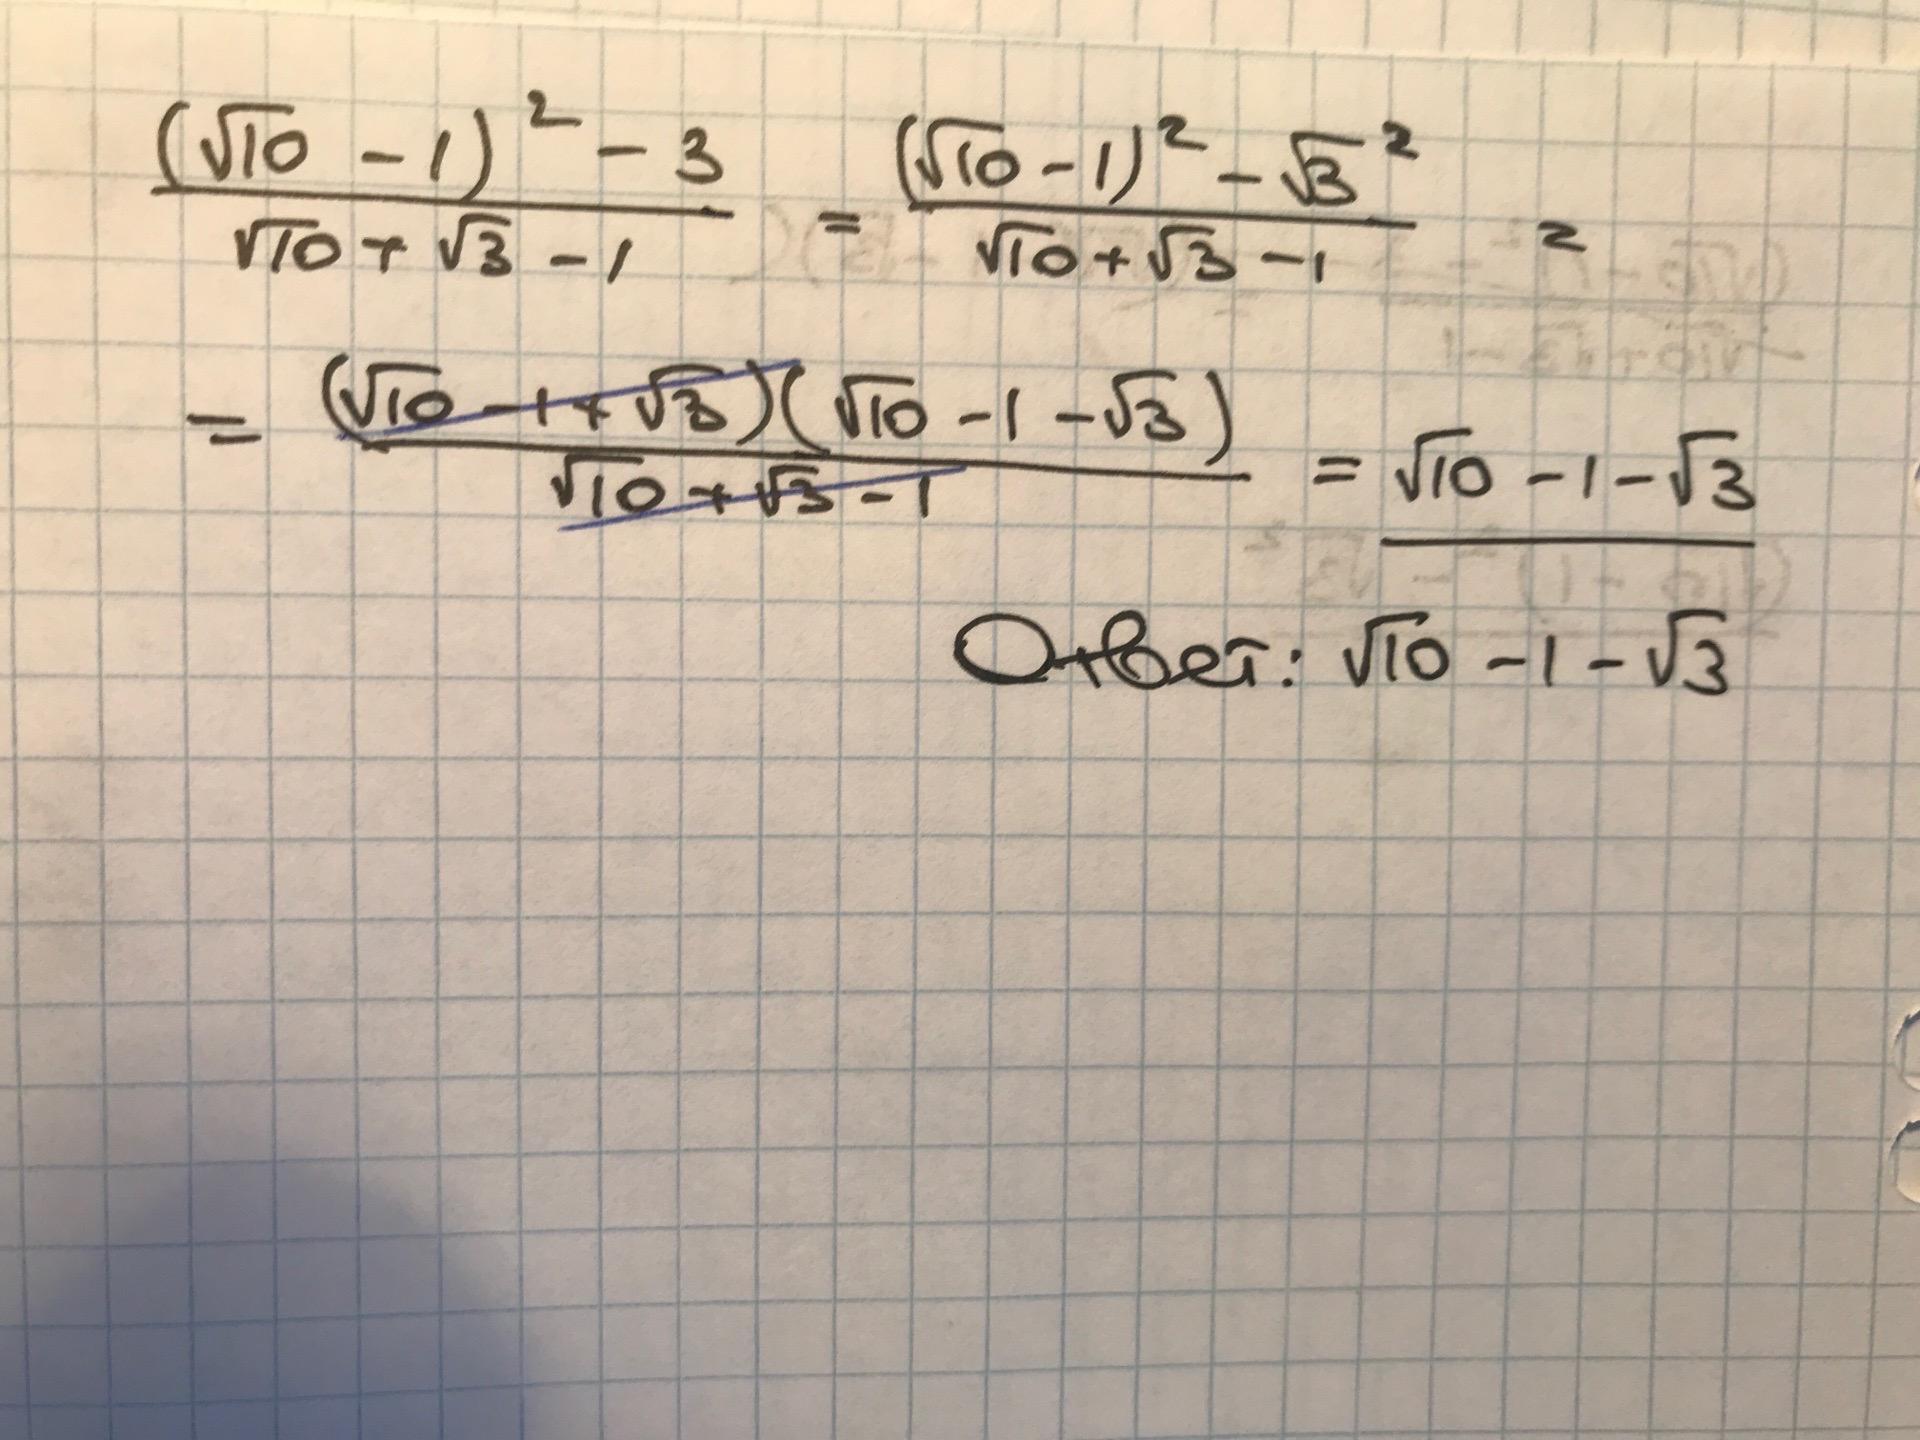 (√10 - 1)² - 3 / √10 + √3 - 1 = (√10 - 1)² - √3² / √10 + √3 - 1 =
= (√10 - 1 + √3)(√10 - 1 - √3) / √10 + √3 - 1 = √10 - 1 - √3
Ответ: √10 - 1 - √3